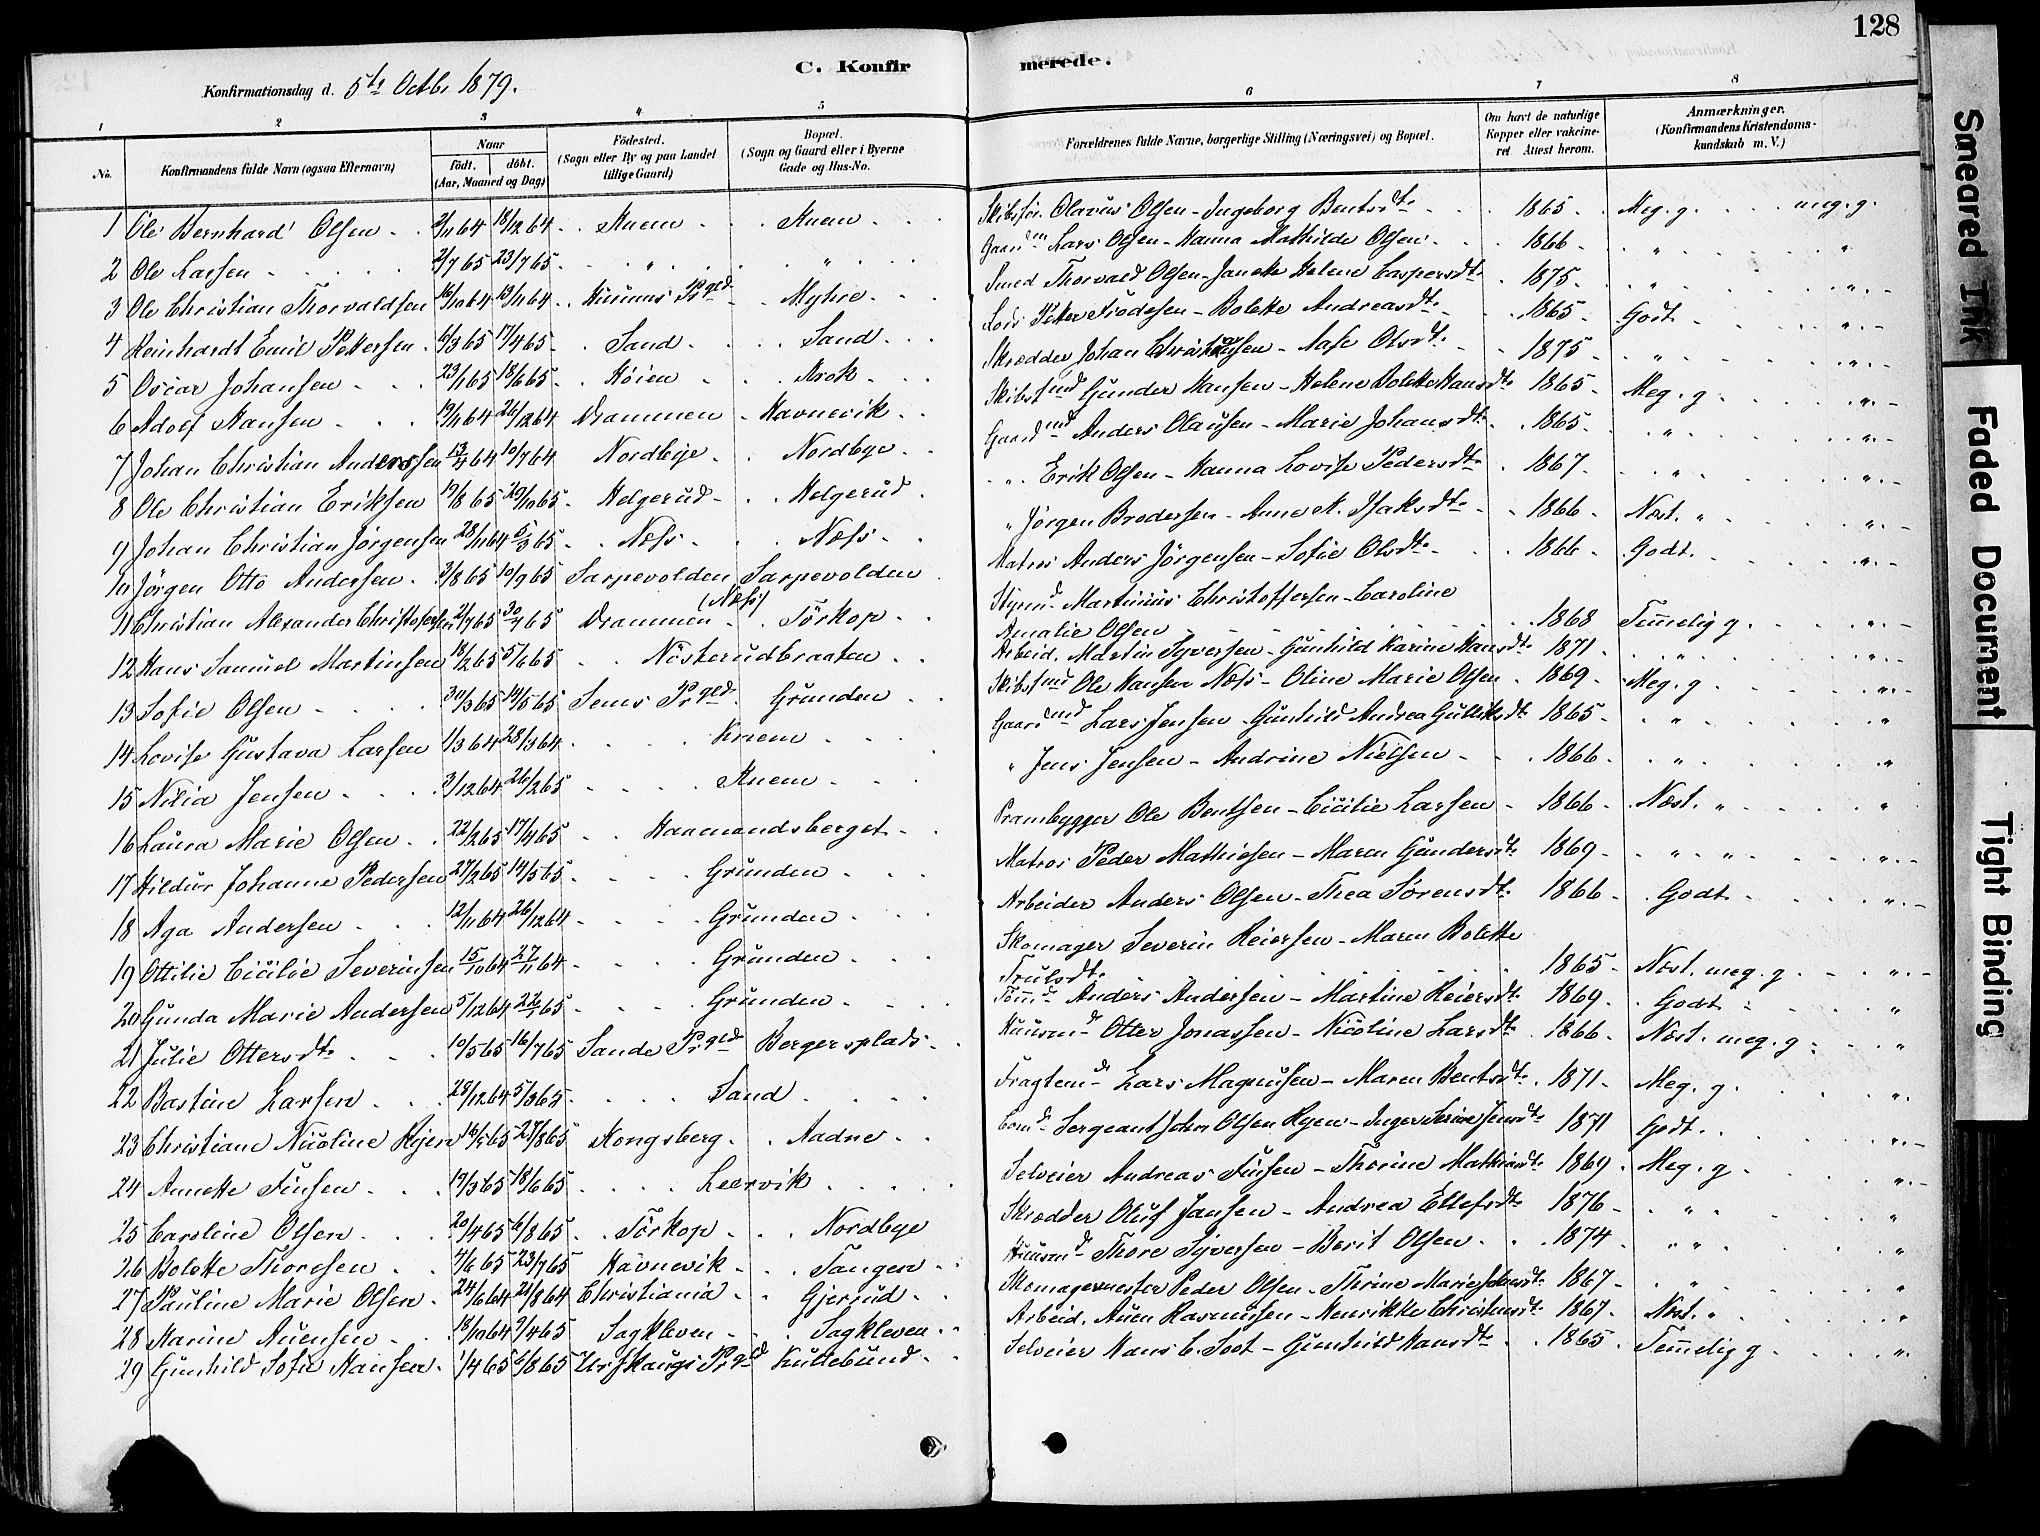 128
C. Konfirmerede.
Konfirmationsdag d. 5te Octbr 1879.
1 2 3 4 5 6 7 8
No. Konfirmandens fulde Navn (ogsaa Efternavn) Naar født. døbt. (Aar, Maaned og Dag) Fødested. (Sogn eller By og paa Landet tillige Gaard) Bopæl. (Sogn og Gaard eller i Byerne Gade og Hus-No. Forældrenes fulde Navne, borgerlige Stilling (Næringsvei) og Bopæl. Om havt de naturlige Kopper eller vakcineret Attest herom. Anmærkninger. (Konfirmandens Kristendomskundskab m. V.)
1 Ole Bernhard Olsen 2/11 64 18/12 64 Knem Knem Skibsfør. Olavus Olsen - Ingeborg Bentsdtr 1865 Meg. g. meg. g.
2 Ole Larsen 2/7 65 23/7 65 " " Gaardm Lars Olsen - Hanna Mathilde Olsen 1866 " "
3 Ole Christian Thorvaldsen 16/10 64 13/11 64 Hurums Prgld Myhre Smed Thorvald Olsen - Janette Helene Caspersdtr 1875 " "
4 Reinhardt Emil Pettersen 6/3 65 17/4 65 Sand Sand Lods Petter Frodesen - Bolette Andreasdtr 1865 Godt "
5 Oscar Johansen 23/1 65 18/6 65 Høien Krok Skrædder Johan Christiansen - Aase Olsdtr 1875 " "
6 Adolf Hansen 19/11 64 26/12 64 Drammen Havnevik Skibstmd Gunder Hansen - Helene Bolette Hansdtr 1865 Meg. g "
7 Johan Christian Anderssen 13/4 64 10/7 64 Nordbye Nordbye Gaardmd Anders Olausen - Marie Johansdtr 1865 " "
8 Ole Christian Eriksen 19/8 65 29/10 65 Helgerud Helgerud " Erik Olsen - Hanna Lovise Pedersdtr 1867 " "
9 Johan Christian Jørgensen 28/11 64 5/3 65 Næss Næss " Jørgen Brodersen - Anne K. Isaksdtr 1866 Næst. " "
10 Jørgen Otto Andersen 3/8 65 10/9 65 Sarpevolden Sarpevolden Matros Anders Jörgensen - Sofie Olsdtr 1866 Godt "
11 Christian Alexander Christofersen 2/7 65 30/7 65 Drammen (Næss) Törkop Styrmd Martinius Christoffersen - Caroline
Amalie Olsen 1868 Temmelig g "
12 Hans Samuel Martinsen 18/2 65 5/6 65 Nösterudbraaten Arbeid. Martin Syversen - Gunhild Karine Hansdtr 1871 " "
13 Sofie Olsen 30/3 65 14/5 65 Sems Prgld Grunden Skibstmd Ole Hansen Næss - Oline Marie Olsen 1869 Meg. g "
14 Lovise Gustava Larsen 1/3 64 28/3 64 Knem Gaardmd Lars Jensen - Gunhild Andrea Gulliksdtr 1865 " "
15 Nilia Jensen 3/12 64 26/2 65 Knem " Jens Jensen - Andrine Nielsen 1866 " "
16 Laura Marie Olsen 22/2 65 17/4 65 Haamandsberget Prambygger Ole Bentsen - Cicilie Larsen 1866 Næst. " "
17 Hildur Johanne Pedersen 27/2 65 14/5 65 Grunden Matros Peder Mathiesen - Maren Gundersdtr 1869 " " "
18 Aga Andersen 12/11 64 26/12 64 Grunden Arbeider Anders Olsen - Thea Sörensdtr 1866 Godt "
19 Ottilie Cicilie Severinsen 15/10 64 27/11 64 Grunden Skomager Severin Reiersen - Maren Bolette
Trulsdtr. 1865 Næst. meg. g "
20 Gunda Marie Andersen 5/12 64 22/1 65 Grunden Tømmd Anders Andersen - Martine Reiersdtr 1869 Godt "
21 Julie Ottersdtr 10/5 65 16/7 65 Sande Prgld Bergersplads Huusmd Otter Jonassen - Nicoline Larsdtr 1866 Næst. meg. g "
22 Bastine Larsen 28/12 64 5/3 65 Sand Fragtemd Lars Magnusen - Maren Bentsdtr 1871 Meg. g. "
23 Christiane Nicoline Hyen 16/5 65 27/8 65 Kongsberg Aadne Comd Sergeant John Olsen Hyen - Inger Serine Jensdtr 1871 Godt "
24 Annette Finsen 19/3 65 18/6 65 Leervik Selveier Andreas Finsen - Thorine Mathiasdtr 1869 Meg. g "
25 Caroline Olsen 20/4 65 6/8 65 Törkop Nordbye Skrædder Oluf Jansen - Andrea Ellefsdtr 1876 " "
26 Bolette Thoresen 4/6 65 23/7 65 Havnevik Tangen Huusmd Thore Syversen - Berit Olsen 1874 " "
27 Pauline Marie Olsen 24/6 64 21/8 64 Christiania Gjerrud Skomagermester Peder Olsen - Thrine Marie Johnsdtr 1867 " "
28 Karine Auensen 18/10 64 9/4 65 Sagkleven Sagkleven Arbeid. Auen Rasmussen - Henrikke Christensdtr 1867 Næst. " "
29 Gunhild Sofie Hansen 1/4 65 6/8 65 Urskougs Prgld Kultebund Selveier Hans C. Soot - Gunhild Hansdtr 1865 Temmelig g "
Smeared Ink
Faded Document
Tight Binding